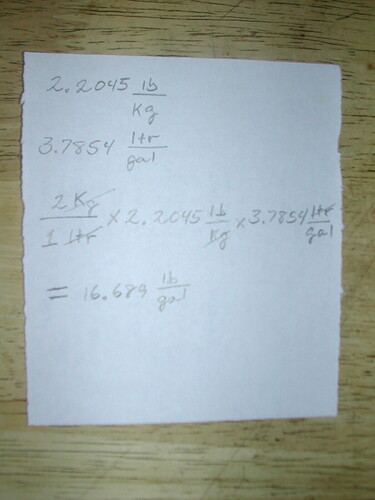 2.2045 lb/Kg
3.7854 ltr/gal
2 Kg/1 ltr × 2.2045 lb/Kg × 3.7854 ltr/gal
= 16.689 lb/gal